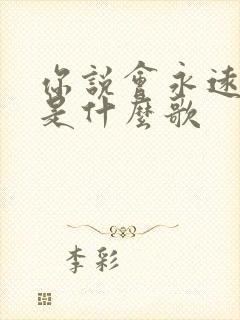 你說會永遠
是什麼歌
李彩